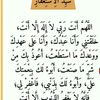 سيد الاستغفار
اللهم أنت ربي لا إله إلا أنت،
خلقتني وأنا عبدك وأنا على عهدك
ووعدك ما استطعت، أعوذ بك من
شر ما صنعت، أبوء لك بنعمتك
علي، وأبوء لك بذنبي فاغفر